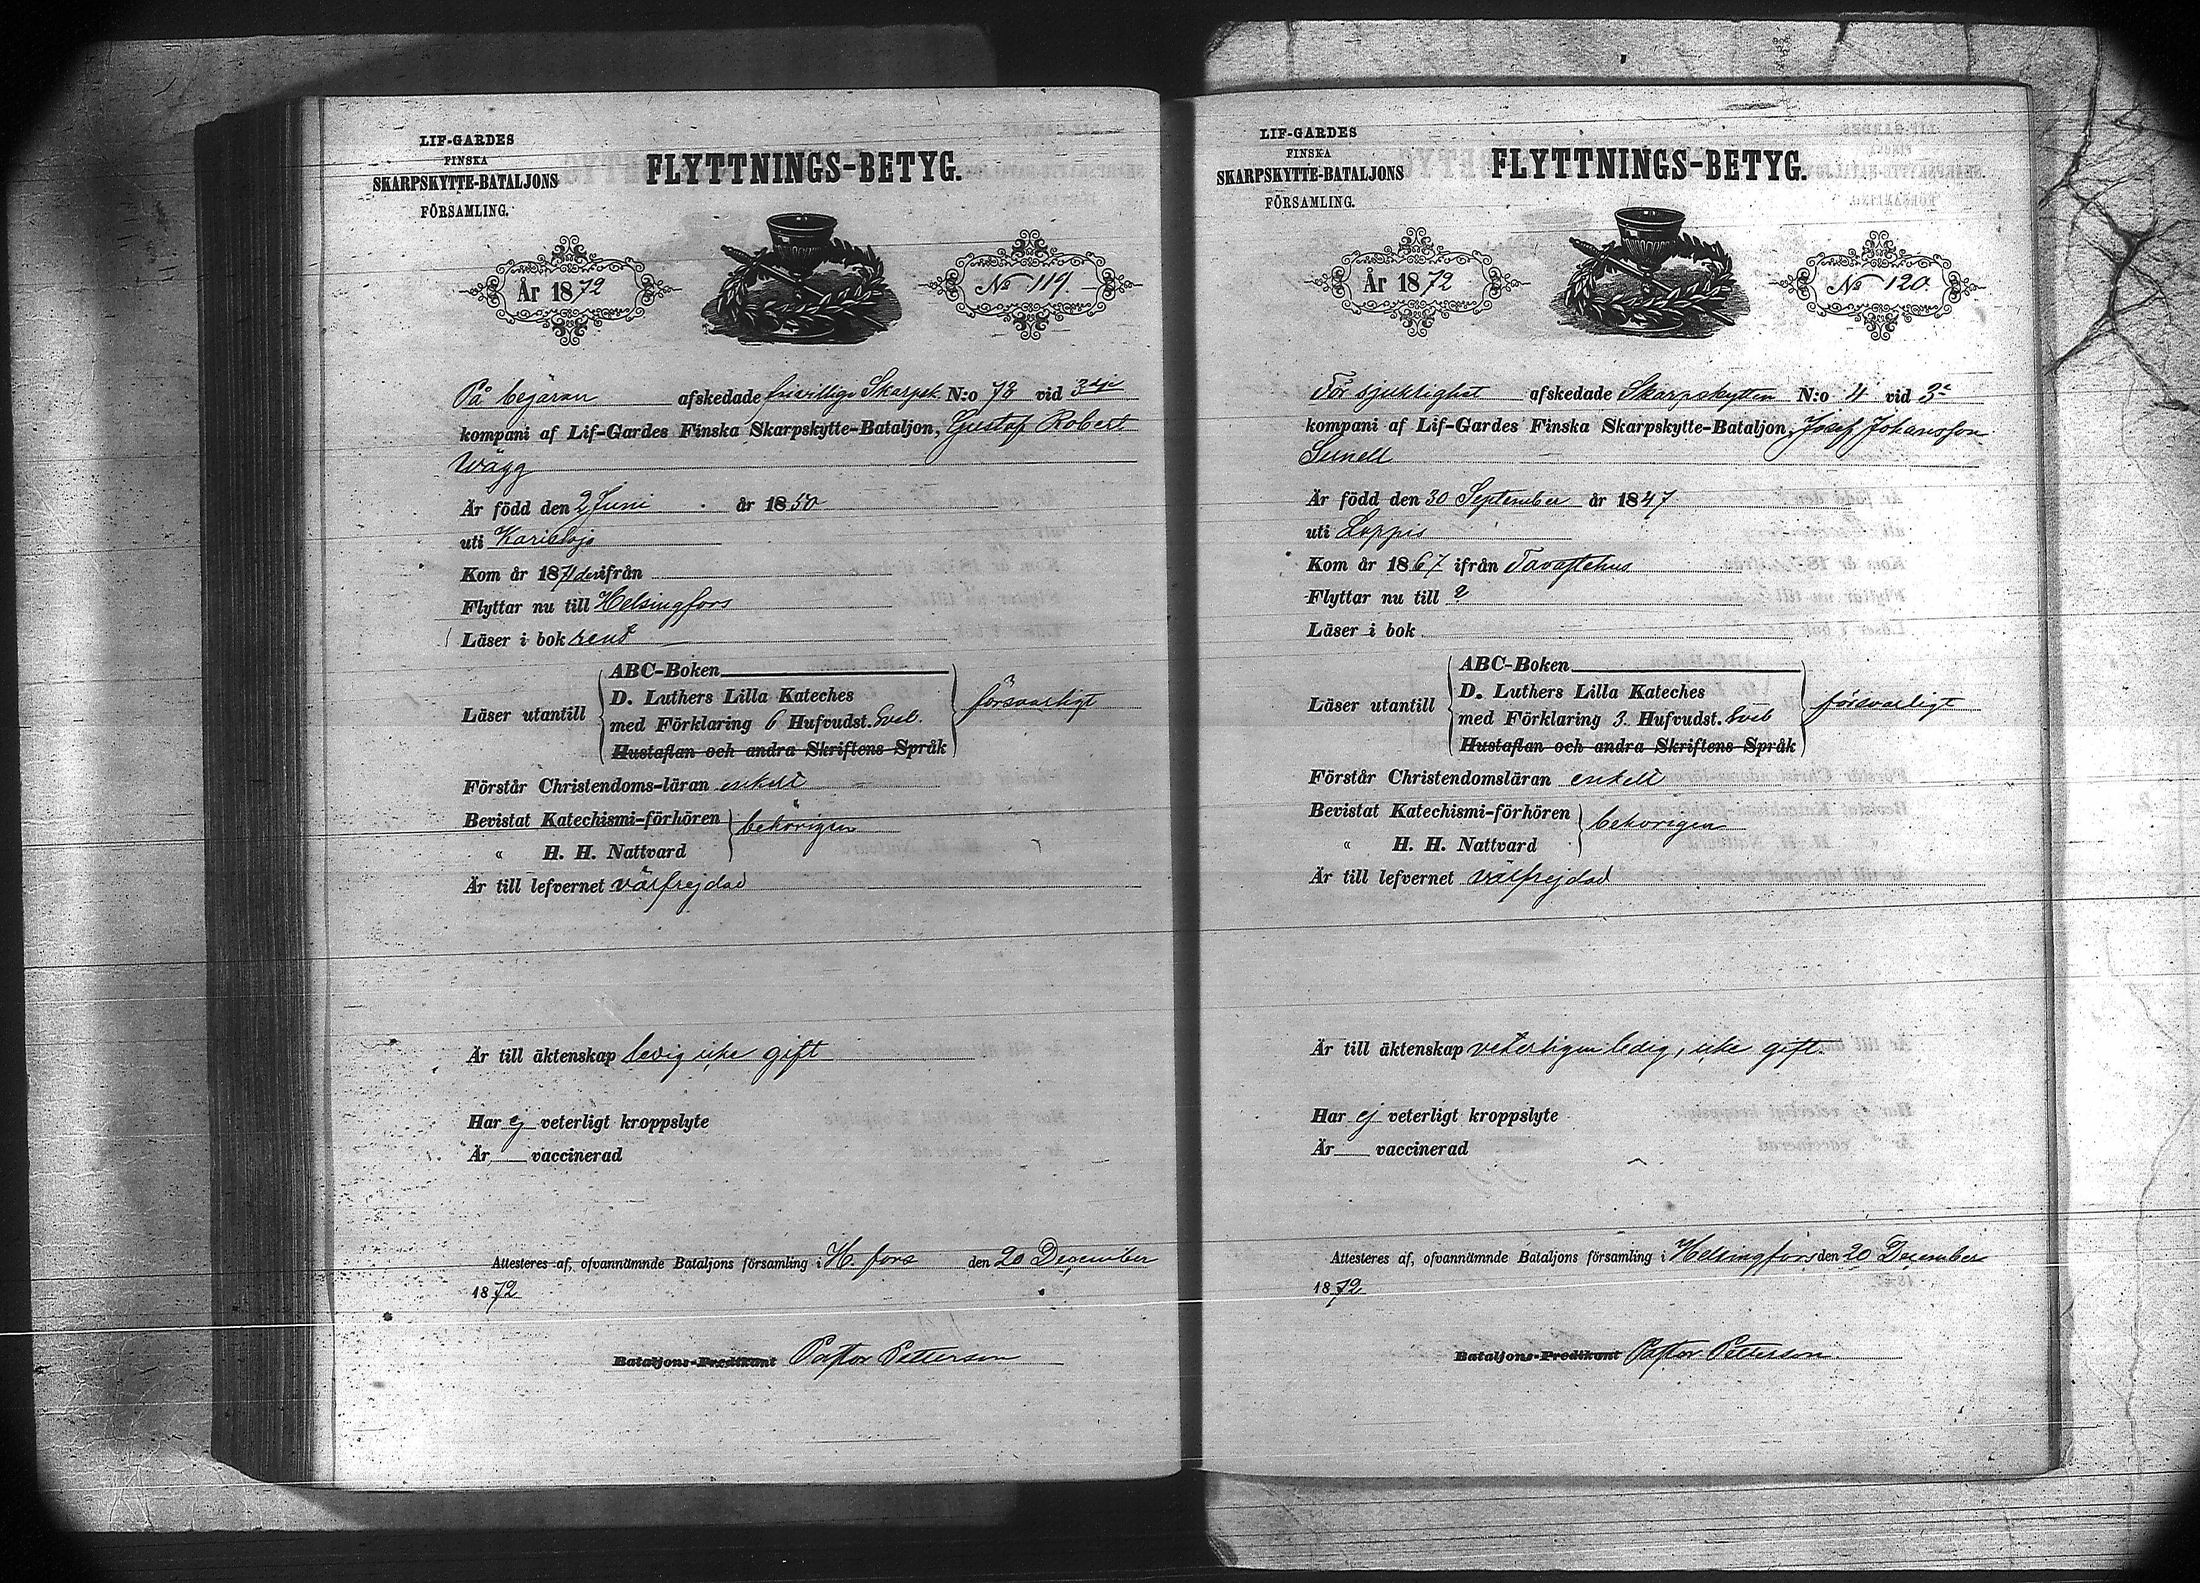 LIF-GARDES
FINSKA
SKARPSKYTTE-BATALJONS
FÖRSAMLING.
FLYTTNINGS-BETYG.
År 1872
No 119.
På begäran afskedade frivillige Skarpsk. N:o 78 vid 3dje
kompani af Lif-Gardes Finska Skarpskytte-Bataljon, Gustaf Robert
Wägg
Är född den 2 Juni år 1850
uti Karislojo
Kom år 1871 ifrån
Flyttar nu till Helsingfors
Läser i bok rent
Läser utantill
ABC-Boken
D. Luthers Lilla Kateches
med Förklaring 6 Hufvudst. Sveb.
Hustaflan och andra Skriftens Språk
försvarligt
Förstår Christendoms-läran enkelt
Bevistat Katechismi-förhören
« H. H. Nattvard
behörigen
Är till lefvernet välfrejdad
Är till äktenskap ledig icke gift
Har ej veterligt kroppslyte
Är vaccinerad
Attesteres af, ofvannämnde Bataljons församling i H. fors den 20 December
1872
Bataljons-Predikant Pastor Petterson
LIF-GARDES
FINSKA
SKARPSKYTTE-BATALJONS
FÖRSAMLING.
FLYTTNINGS-BETYG.
År 1872
No 120
För sjuklighet afskedade Skarpskytten N:o 4 vid 3e
kompani af Lif-Gardes Finska Skarpskytte-Bataljon, Josef Johansson
Är född den 30 September år 1847
uti Loppis
Kom år 1867 ifrån Tavastehus
Flyttar nu till ?
Läser i bok
Läser utantill
ABC-Boken
D. Luthers Lilla Kateches
med Förklaring 3. Hufvudst. Sveb
Hustaflan och andra Skriftens Språk
försvarligt
Förstår Christendomsläran enkelt
Bevistat Katechismi-förhören
« H. H. Nattvard
behörigen
Är till lefvernet välfrejdad
Är till äktenskap veterligen ledig, icke gift.
Har ej veterligt kroppslyte
Är vaccinerad
Attesteres af, ofvannämnde Bataljons församling i Helsingfors den 20 December
1872
Bataljons-Predikant Pastor Petterson.